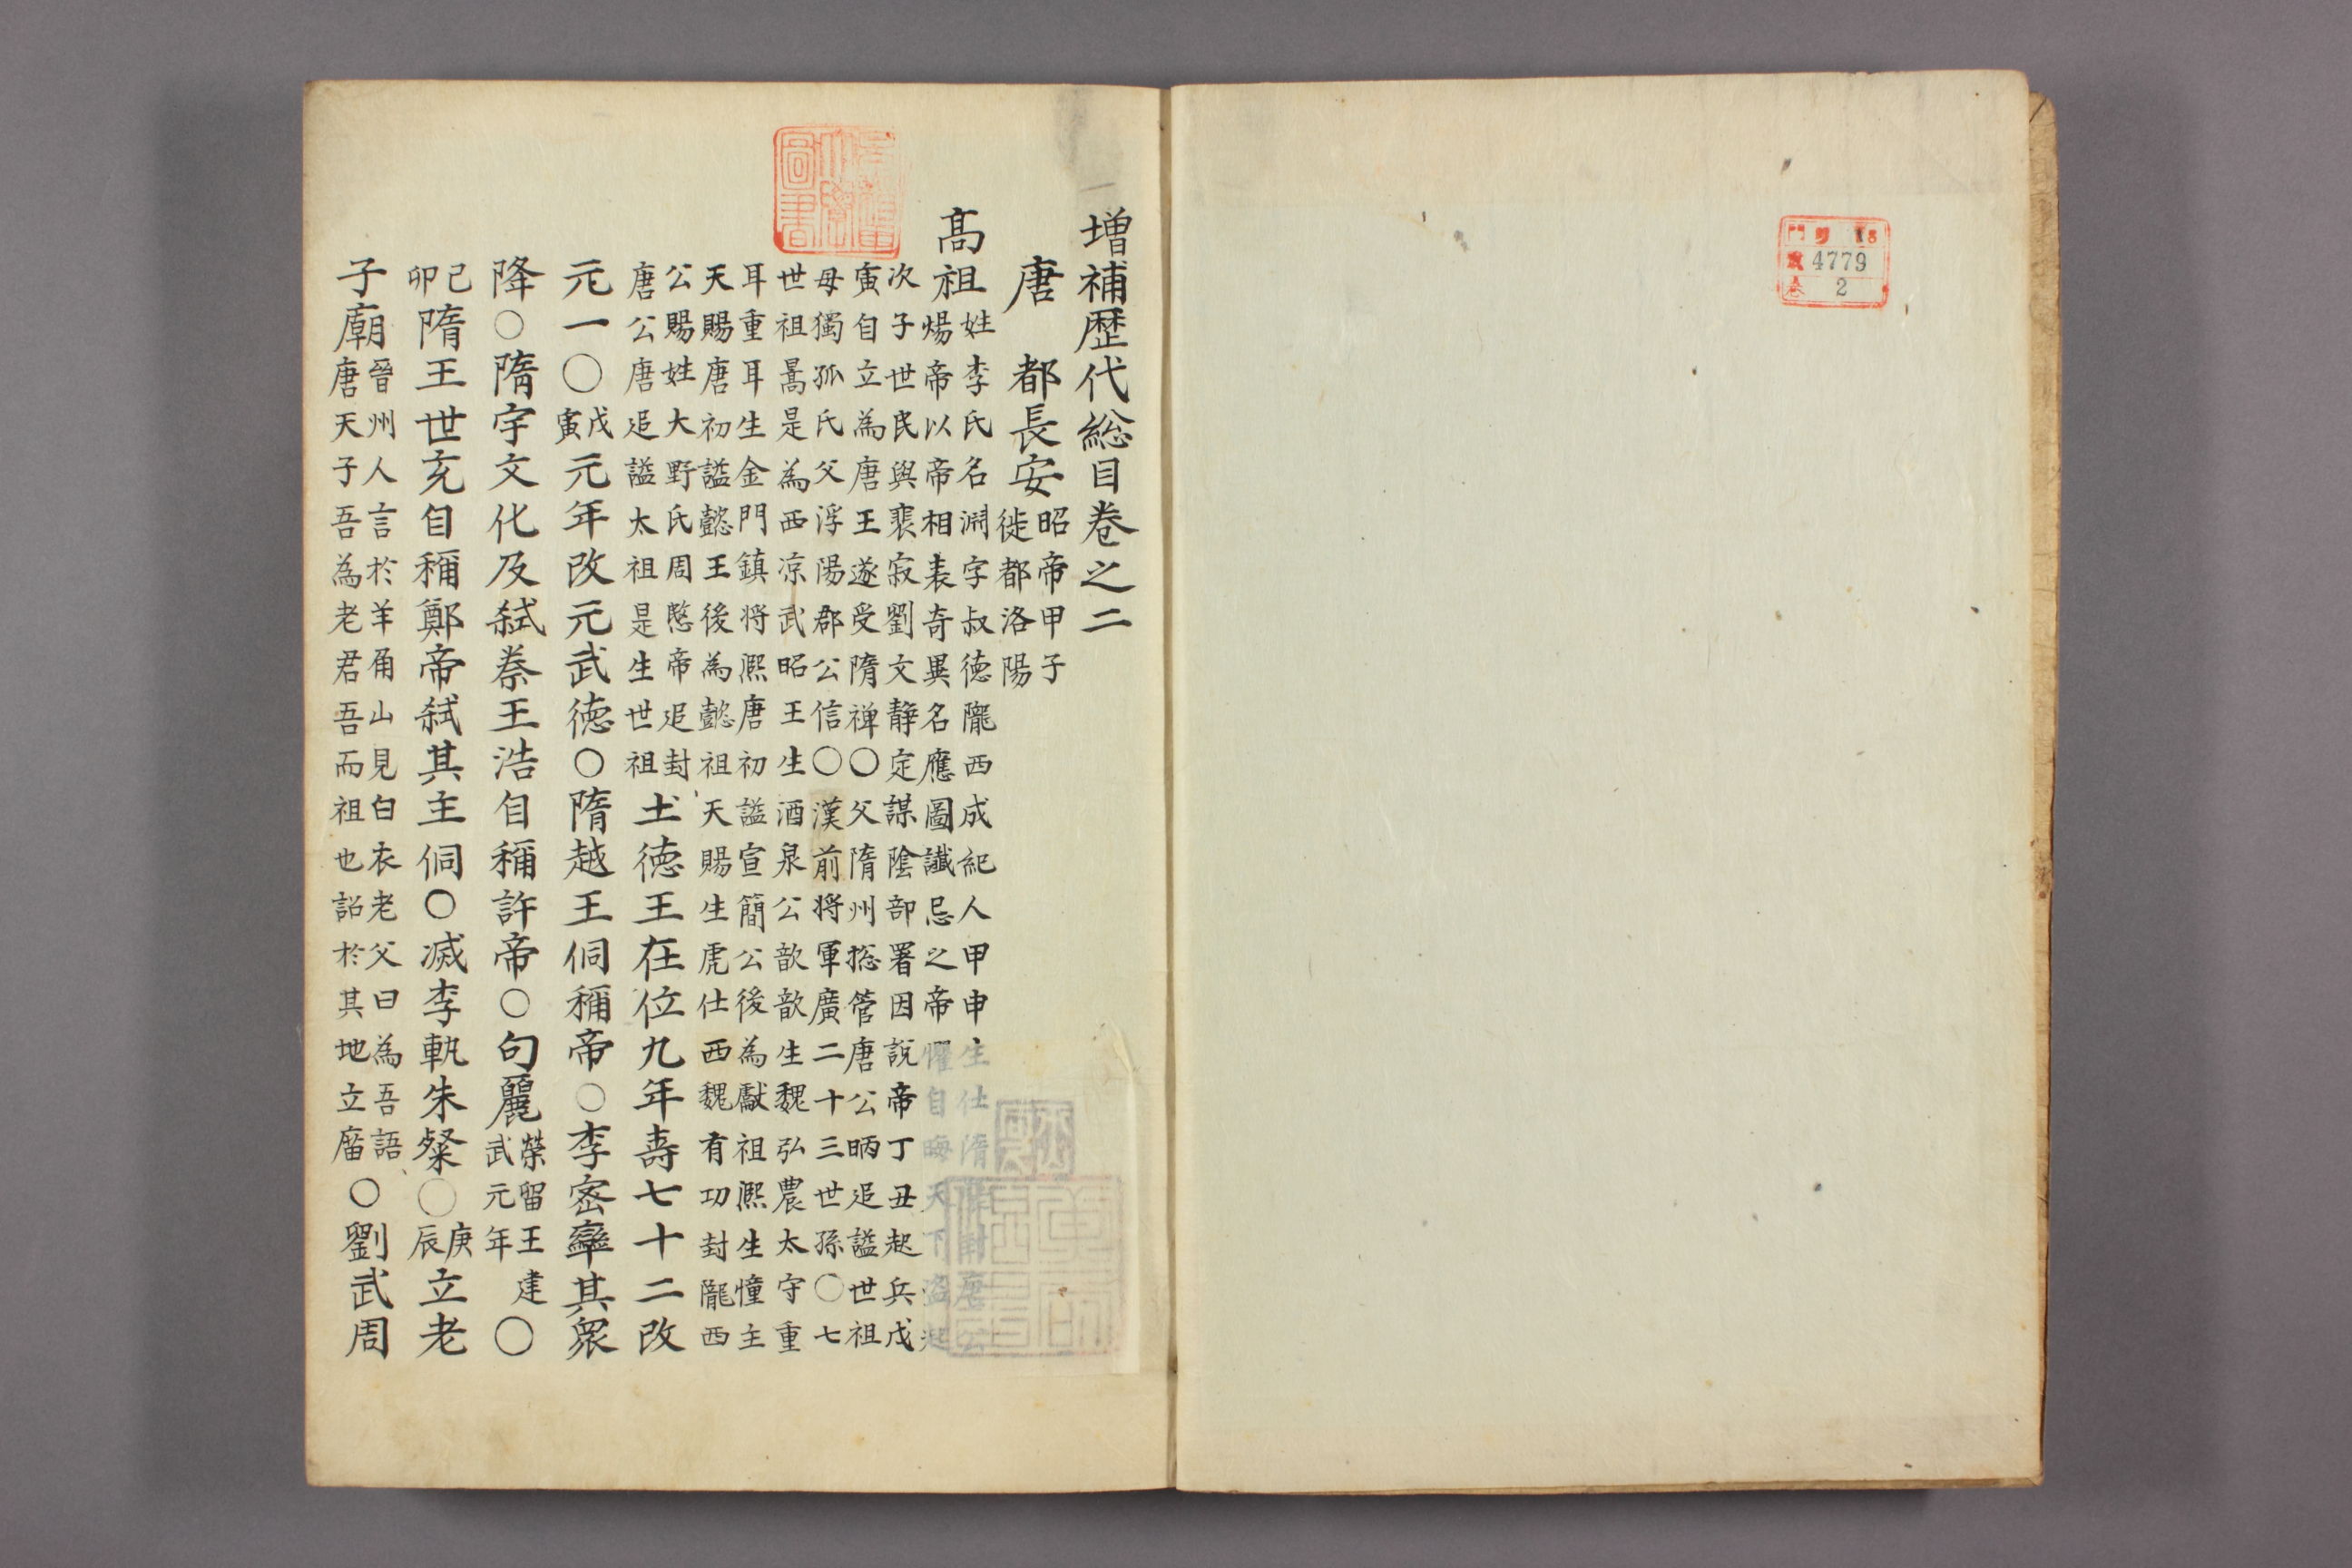 門 18
號 4779
卷 2
增補歷代総目卷之二
唐 都長安
昭帝甲子
徙都洛陽
高祖
姓李氏名淵字叔德隴西成紀人甲申生仕隋襲封唐公
煬帝以帝相表奇異名應圖讖忌之帝懼自晦天下盜起
次子世民與裴寂劉文靜定謀陰部署因說帝丁丑起兵戊
寅自立為唐王遂受隋禅〇父隋州捴管唐公昞追謚世祖
母獨孤氏父浮陽郡公信〇漢前将軍廣二十三世孫〇七
世祖暠是為西凉武昭王生酒泉公歆歆生魏弘農太守重
耳重耳生金門鎮将熈唐初謚宣簡公後為獻祖熈生憧主
天賜唐初謚懿王後為懿祖天賜生虎仕西魏有功封隴西
公賜姓大野氏周愍帝追封
唐公唐追謚太祖是生世祖
土德王在位九年壽七十二改
元一〇
戊
寅
元年改元武德〇隋越王侗稱帝〇李密率其衆
降〇隋宇文化及弑秦王浩自稱許帝〇句麗
榮留王建
武元年
〇
己
卯
隋王世充自稱鄭帝弑其主侗〇滅李軌朱粲〇
庚
辰
立老
子廟
晉州人言於羊角山見白衣老父曰為吾語
唐天子吾為老君吾而祖也詔於其地立庿
〇劉武周